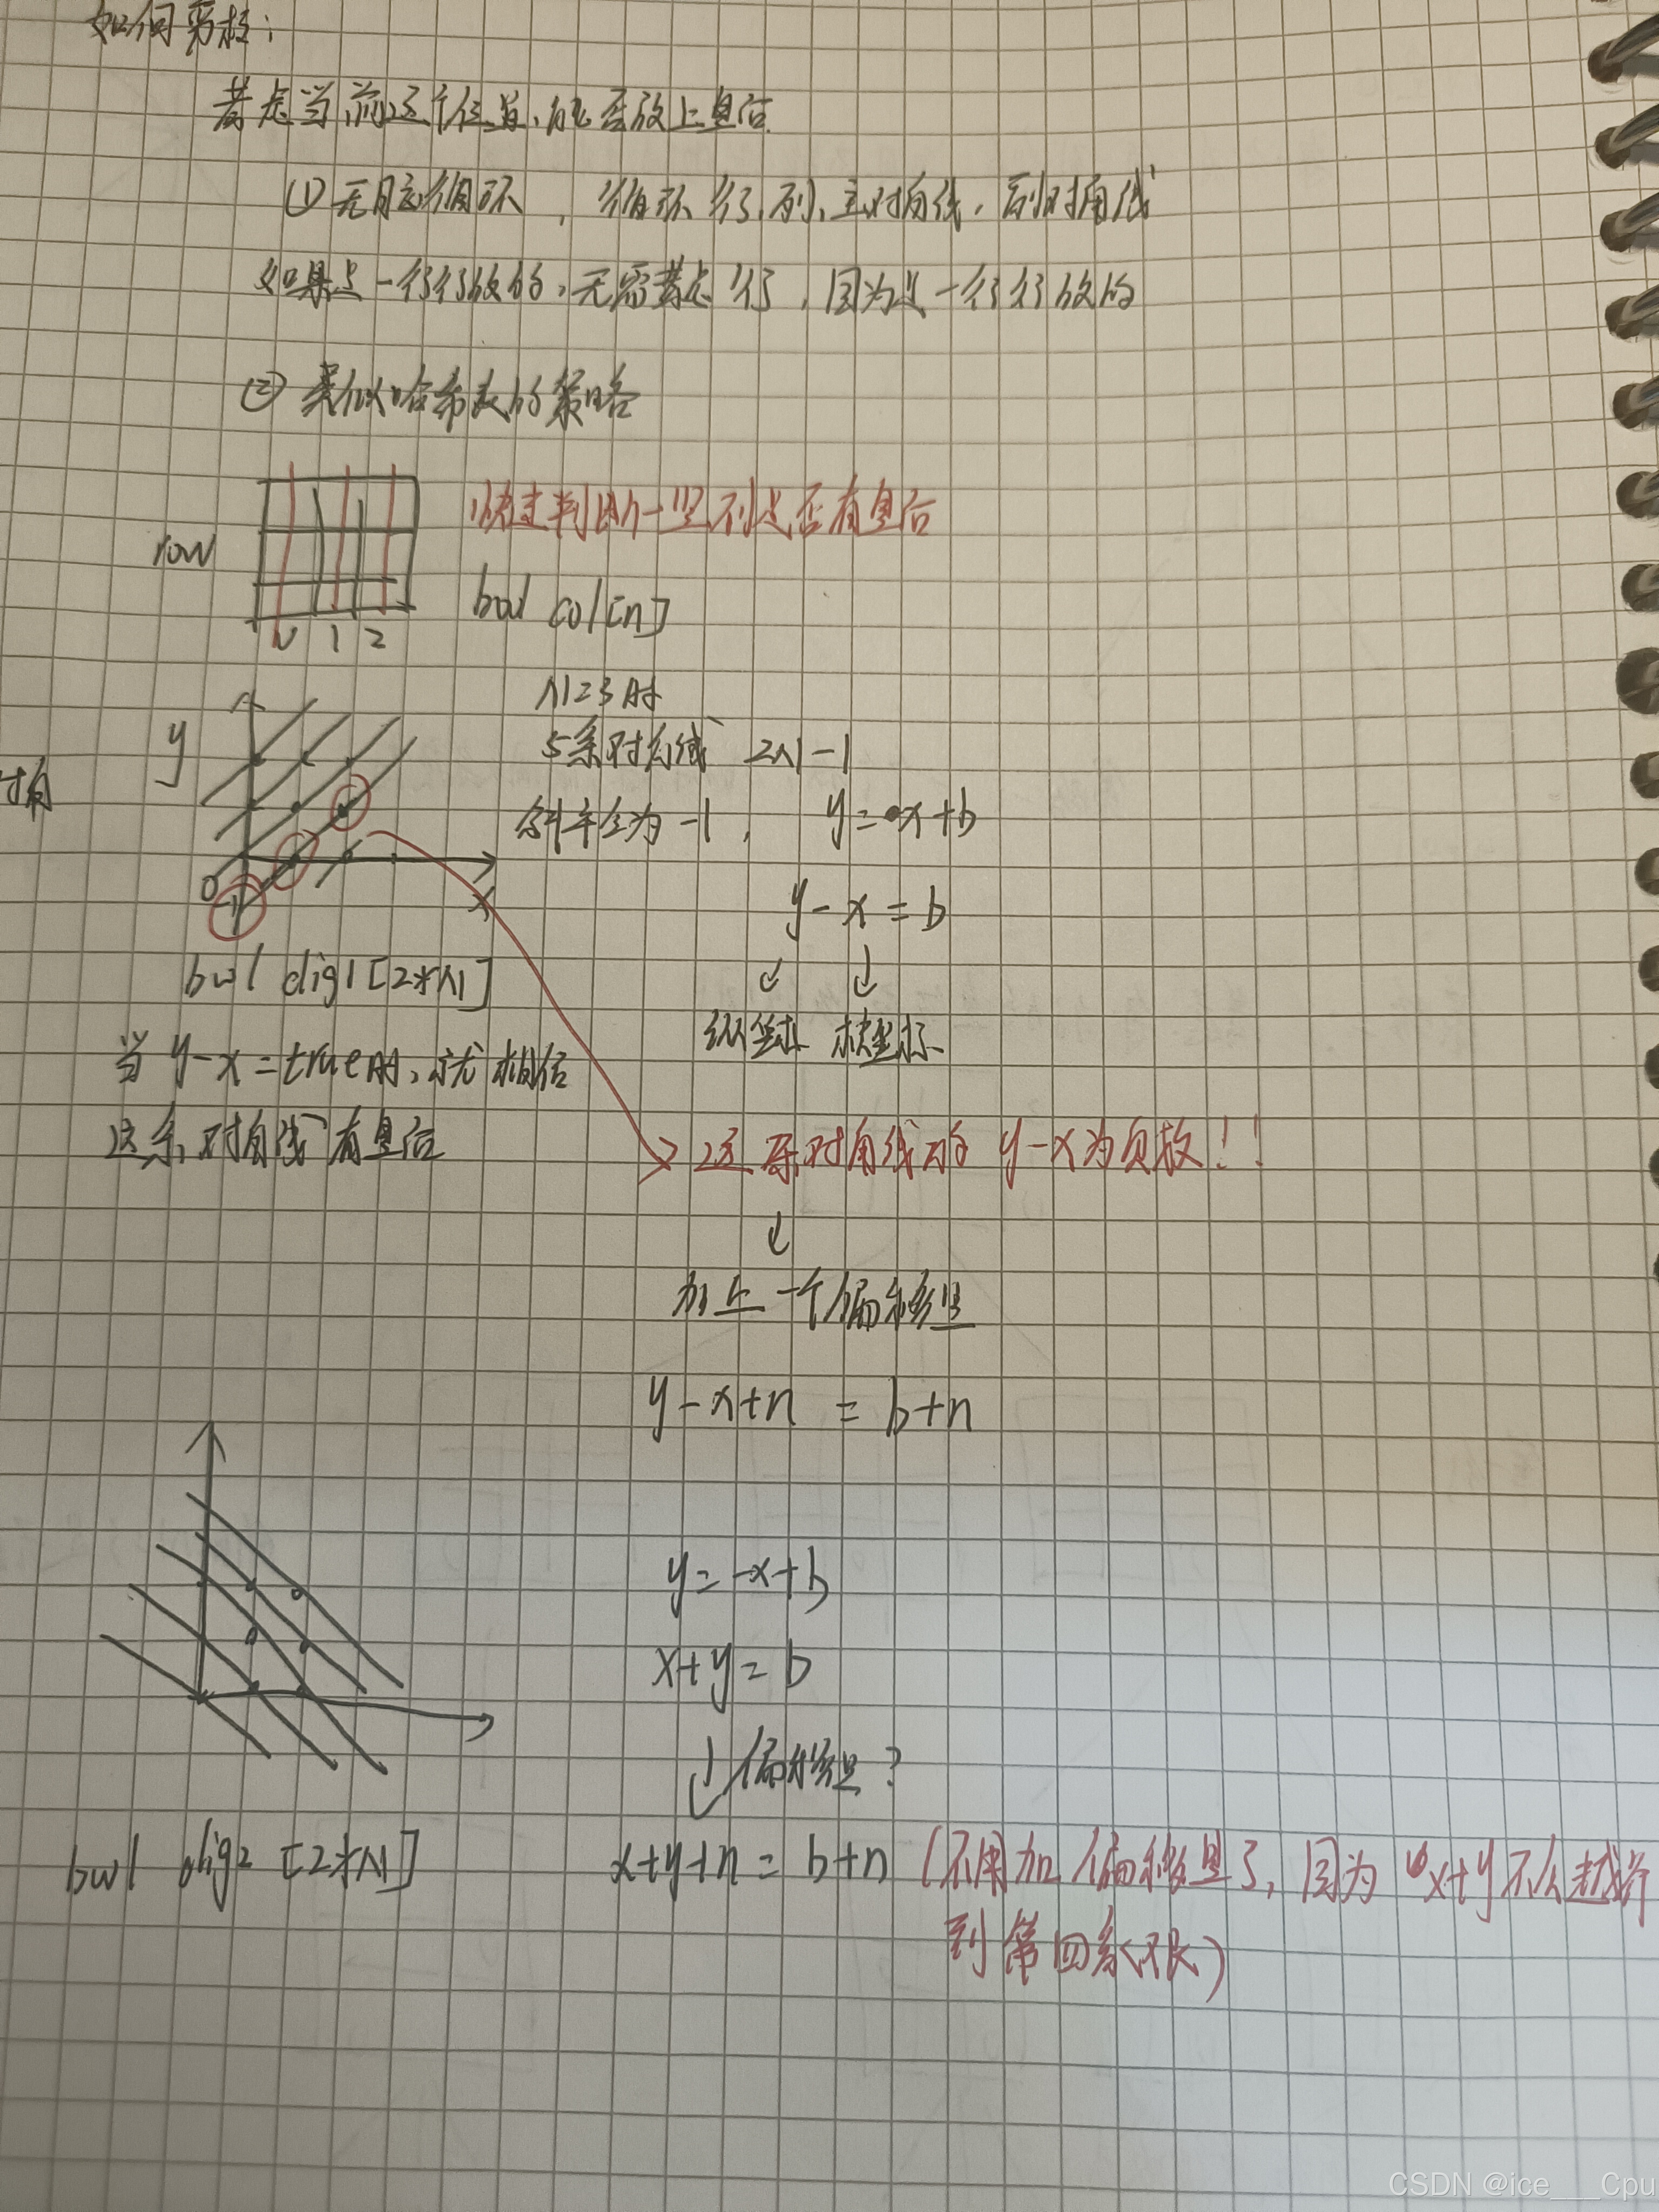 如何剪枝：
考虑当前这个位置，能否放上皇后
① 无脑循环，循环行、列、主对角线，副对角线
如果是一行行放的，无需考虑行，因为是一行行放的
② 类似哈希表的策略
快速判断一竖列是否有皇后
row
bool col[n]
0 1 2
N=3时
y
5条对角线 2N-1
对角
斜率全为-1， y=x+b
0
y-x=b
-1
x
bool dig1[2*N]
纵坐标 横坐标
当y-x=true时，就相信
这条对角线有皇后
这条对角线的y-x为负数！！
加上一个偏移量
y-x+n = b+n
y=-x+b
x+y=b
偏移量?
bool dig2 [2*N]
x+y+n = b+n (不用加偏移量了，因为x+y不会越界
到第四象限)
CSDN @ice___Cpu